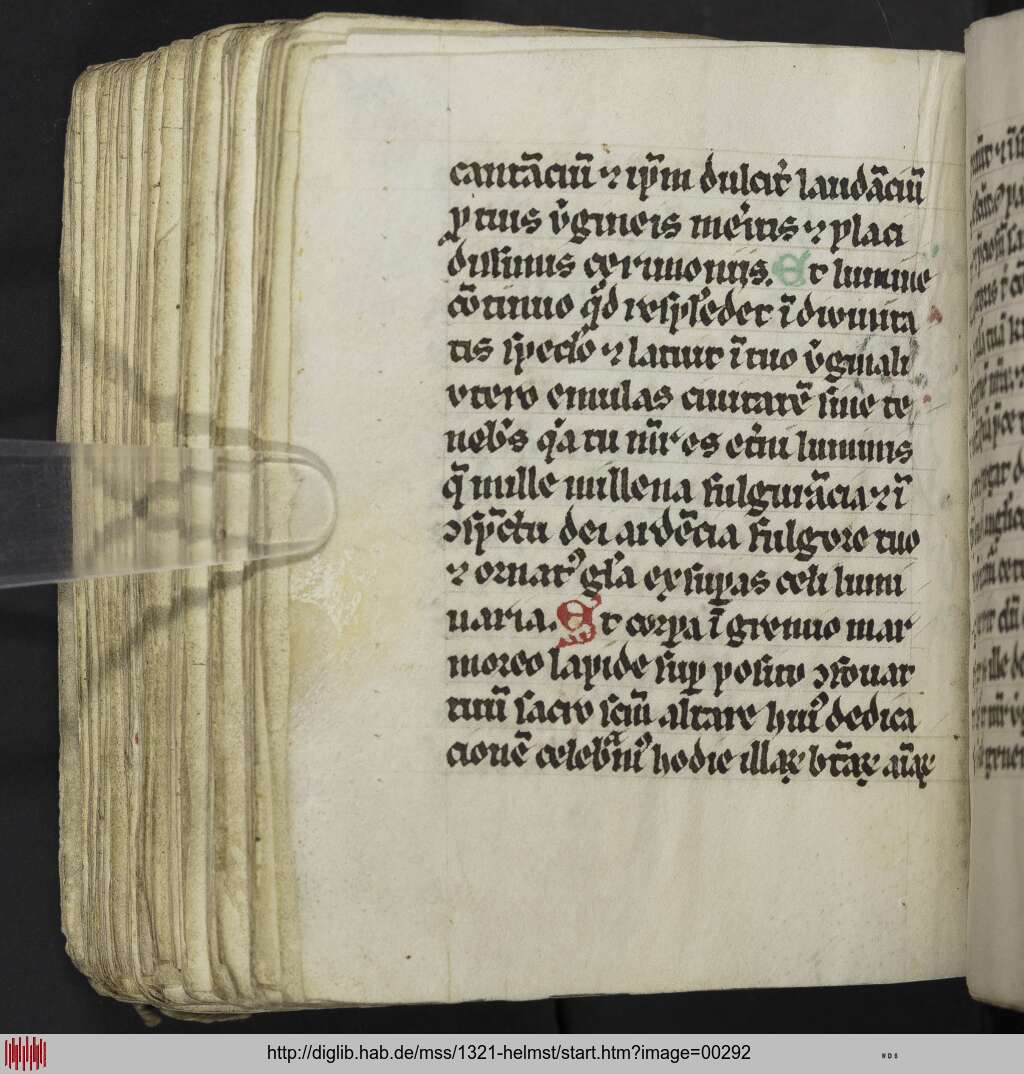 cantāciū ⁊ ip̄m dulcit᷑ laudāciū
ꝓ tuis v̓gineis meritis ⁊ placi
dissimis cerimoniis. Et lumine
cōtinuo qd̓ resplēdet ī diuinita
tis specło ⁊ latuit ī tuo v̓ginali
vtero emulas ciuitatē sine te
neb̓s q̓a tu mr̄ es et̓ni luminis
q̄ mille millena fulgurācia ⁊ ī
ꝯspc̄tu dei ardēcia fulgore tuo
⁊ ornat᷒ gl̓a exsuꝑas celi lumi
naria. Et corꝑa ī gremio mar
moreo lapide suꝑ posito ꝯfouat
tuū sacro sc̄m altare hui᷒ dedica
cionē celeb̓m᷒ hodie illaꝝ btāꝝ aīaꝝ
http://diglib.hab.de/mss/1321-helmst/start.htm?image=00292